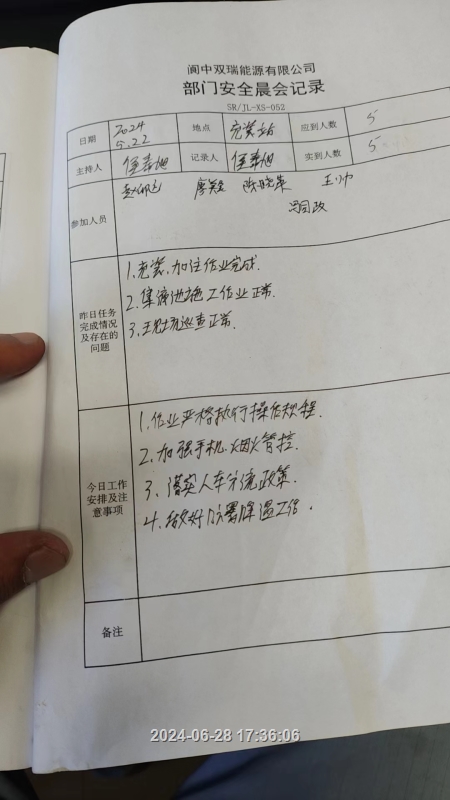 阆中双瑞能源有限公司
部门安全晨会记录
SR/JL-XS-052
日期 2024 5.22 地点 充装站 应到人数 5
主持人 记录人 实到人数 5
参加人员
昨日任务完成情况及存在的问题
1、充装、加注作业完成.
2、集液池施工作业正常.
3、现场巡查正常.
今日工作安排及注意事项
1、作业严格执行操作规程.
2、加强手机、烟火管控.
3、落实人车分流政策.
4、做好防暑降温工作.
备注
2024-06-28 17:36:06